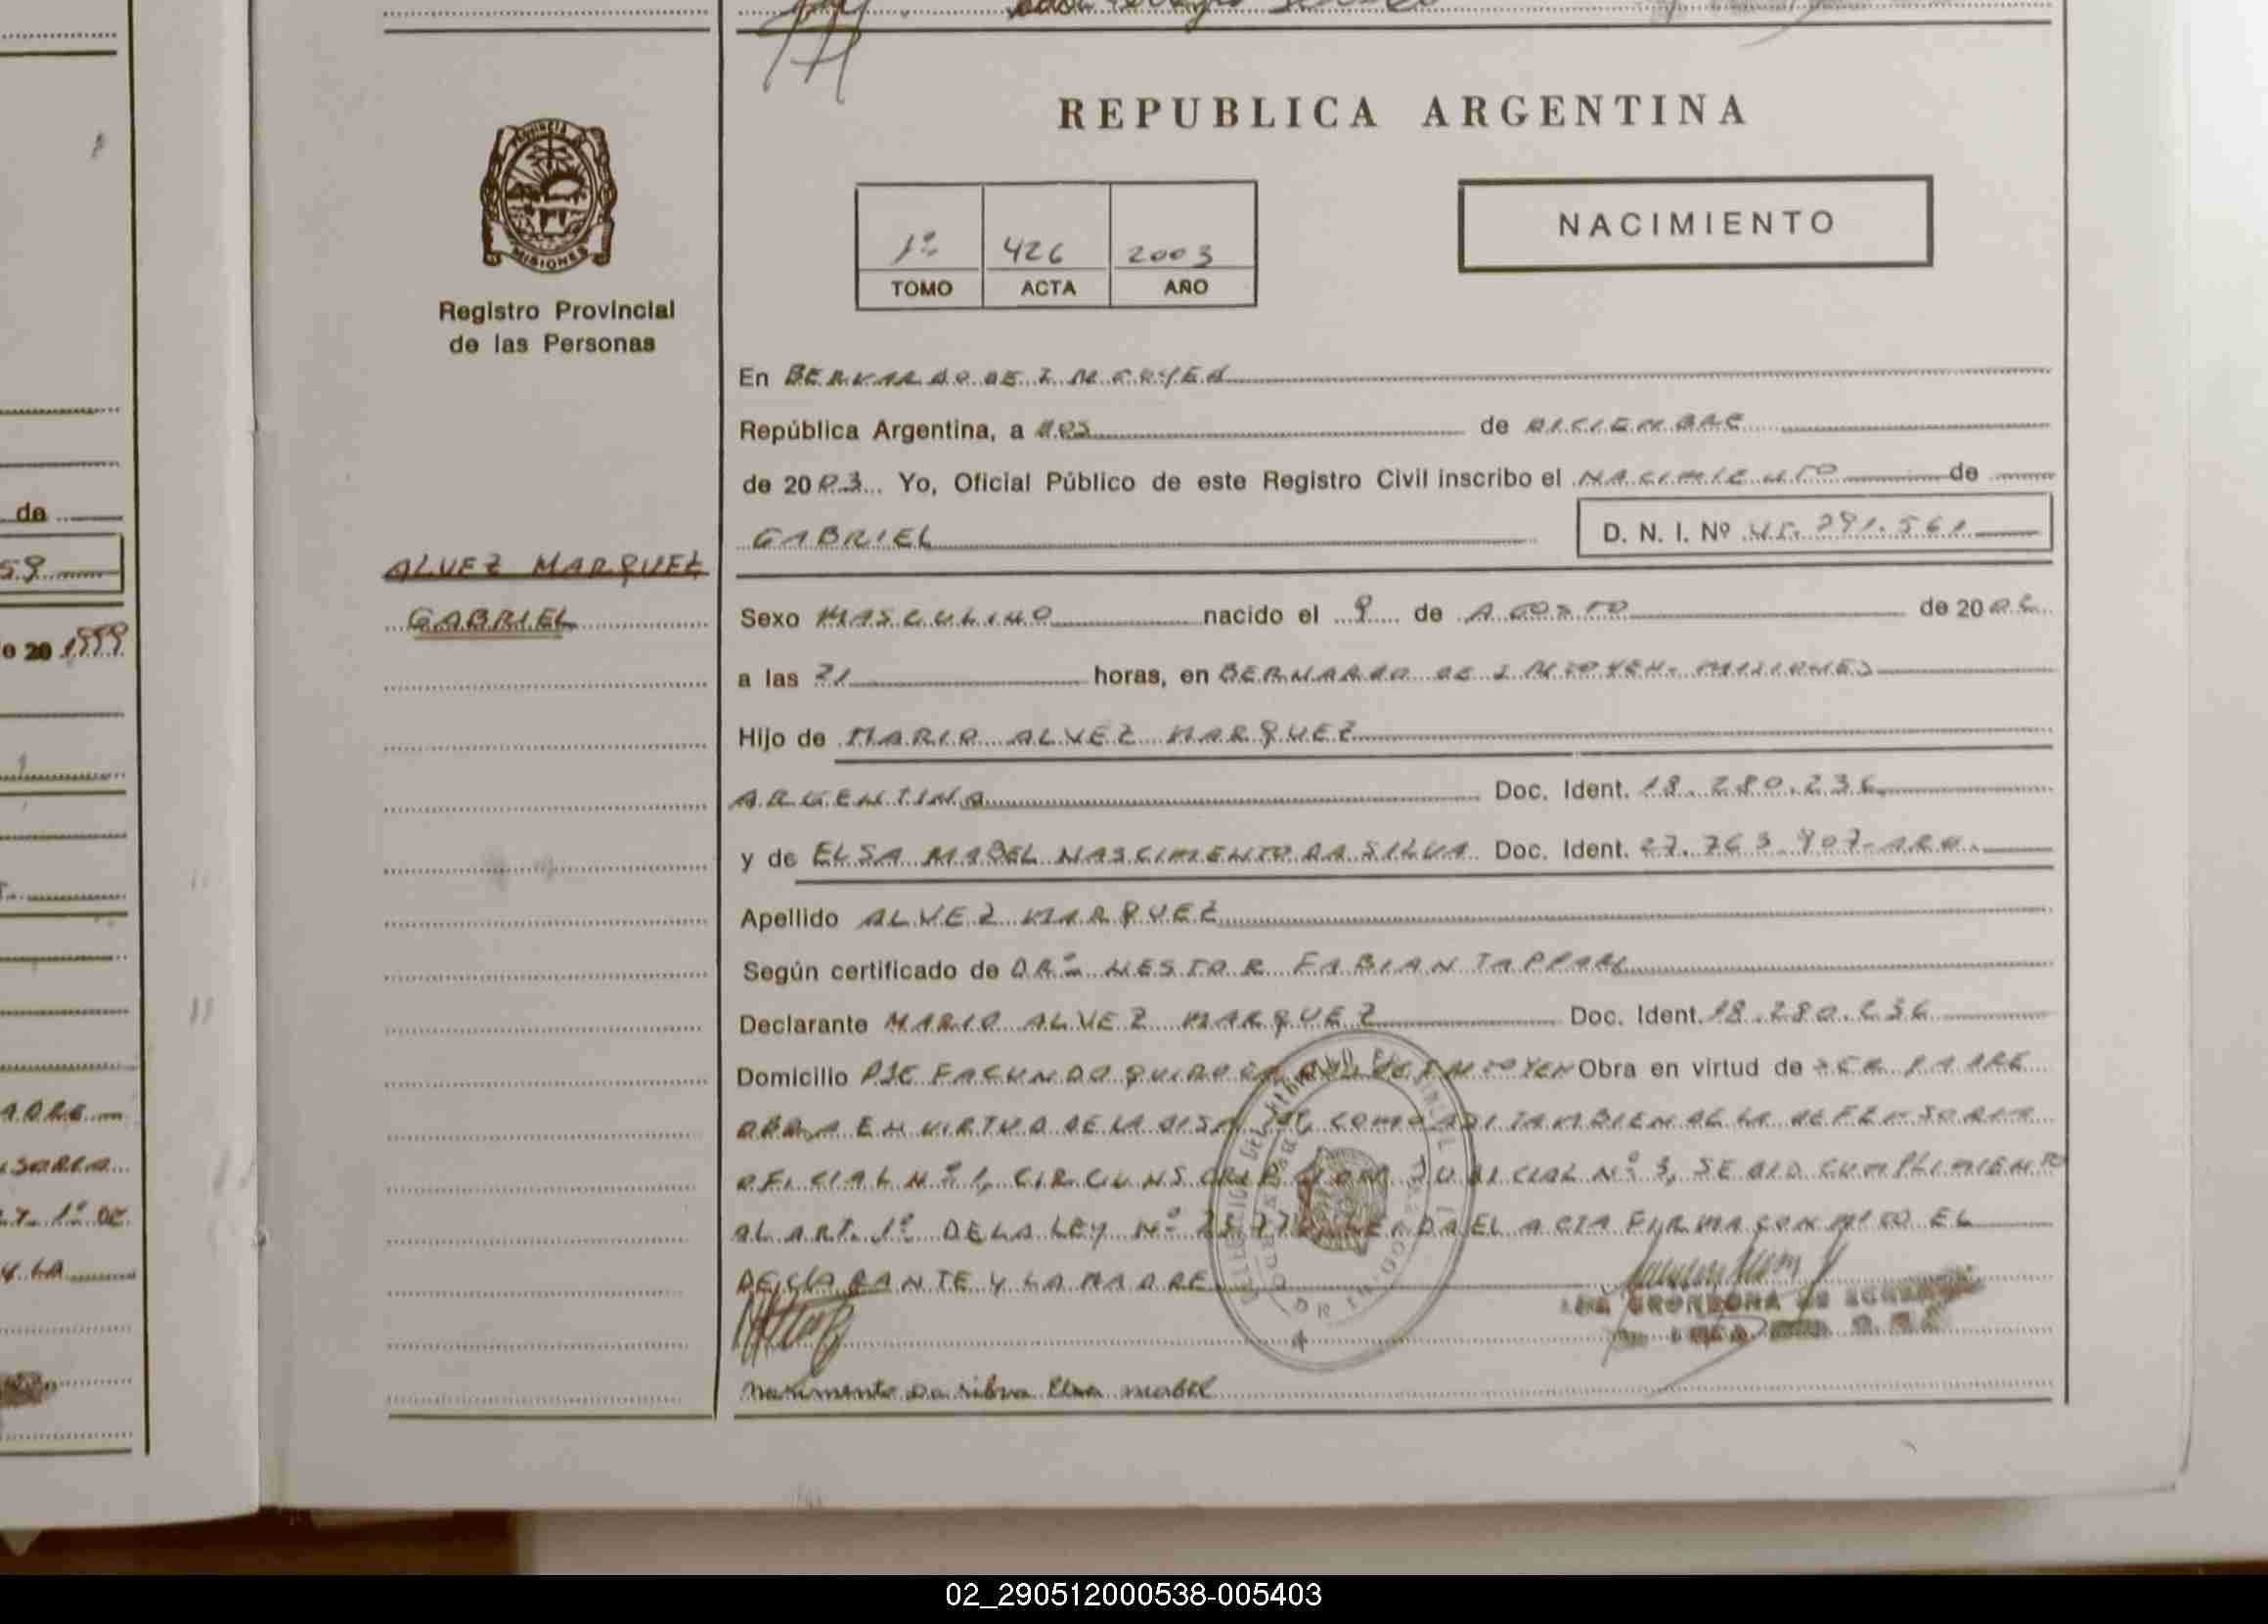 REPUBLICA ARGENTINA
PROVINCIA DE
MISIONES
Registro Provincial
de las Personas
1º 426 2003
TOMO ACTA AÑO
NACIMIENTO
En BERNARDO DE IRIGOYEN
República Argentina, a DOS de DICIEMBRE
de 2003. Yo, Oficial Público de este Registro Civil inscribo el NACIMIENTO de
GABRIEL D. N. I. Nº 45.291.561
ALVEZ MARQUEZ
GABRIEL
Sexo MASCULINO nacido el 9 de AGOSTO de 20
a las 21 horas, en BERNARDO DE IRIGOYEN- MISIONES
Hijo de MARIO ALVEZ MARQUEZ
ARGENTINA Doc. Ident. 18.280.236
y de ELSA MABEL NASCIMENTO DA SILVA Doc. Ident. 27.763.907-ARG.
Apellido ALVEZ MARQUEZ
Según certificado de DRº NESTOR FABIAN
Declarante MARIO ALVEZ MARQUEZ Doc. Ident. 18.280.236
Domicilio PJE FACUNDO QUIROGA Obra en virtud de SER PADRE
OBRA EN VIRTUD DE LA COMO ASI TAMBIEN DE LA DEFENSORIA
OFICIAL Nº 1, CIRCUNSCRIPCION JUDICIAL Nº 3, SE DIO CUMPLIMIENTO
AL ART. 1º DE LA LEY Nº LEIDA EL ACTA FIRMA CONMIGO EL
DECLARANTE Y LA MADRE
Nascimento Da silva Elsa mabel
de
59
de 20 1999
Y LA
02_290512000538-005403